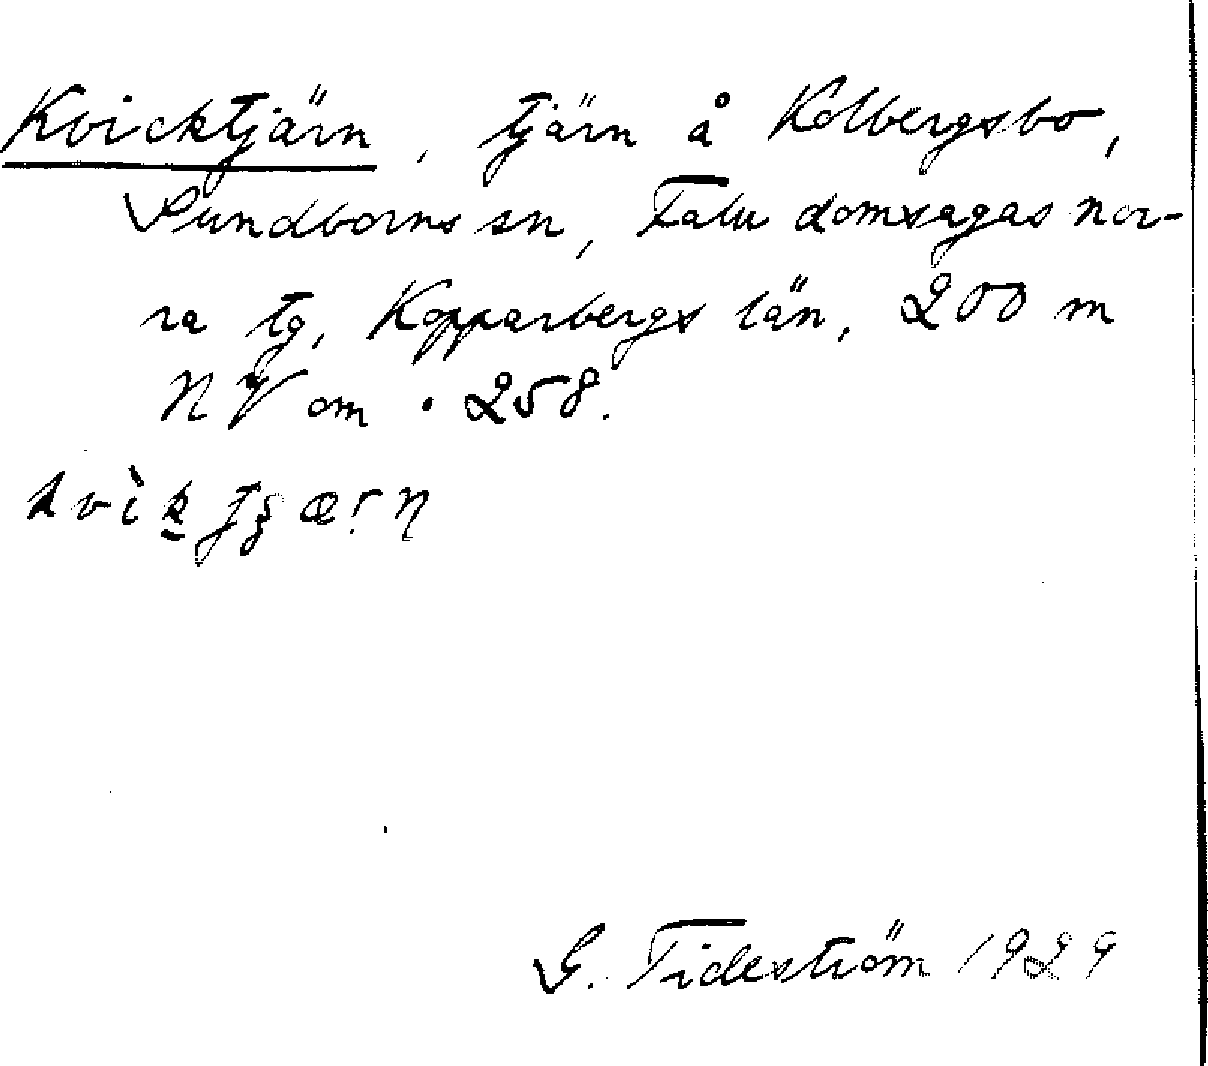 Kvicktjärn, tjärn å Kolbergsbo,
Sundborns sn, Falu domsagas nor-
ra tg, Kopparbergs län, 200 m
NV om • 258.
G. Tideström 1929